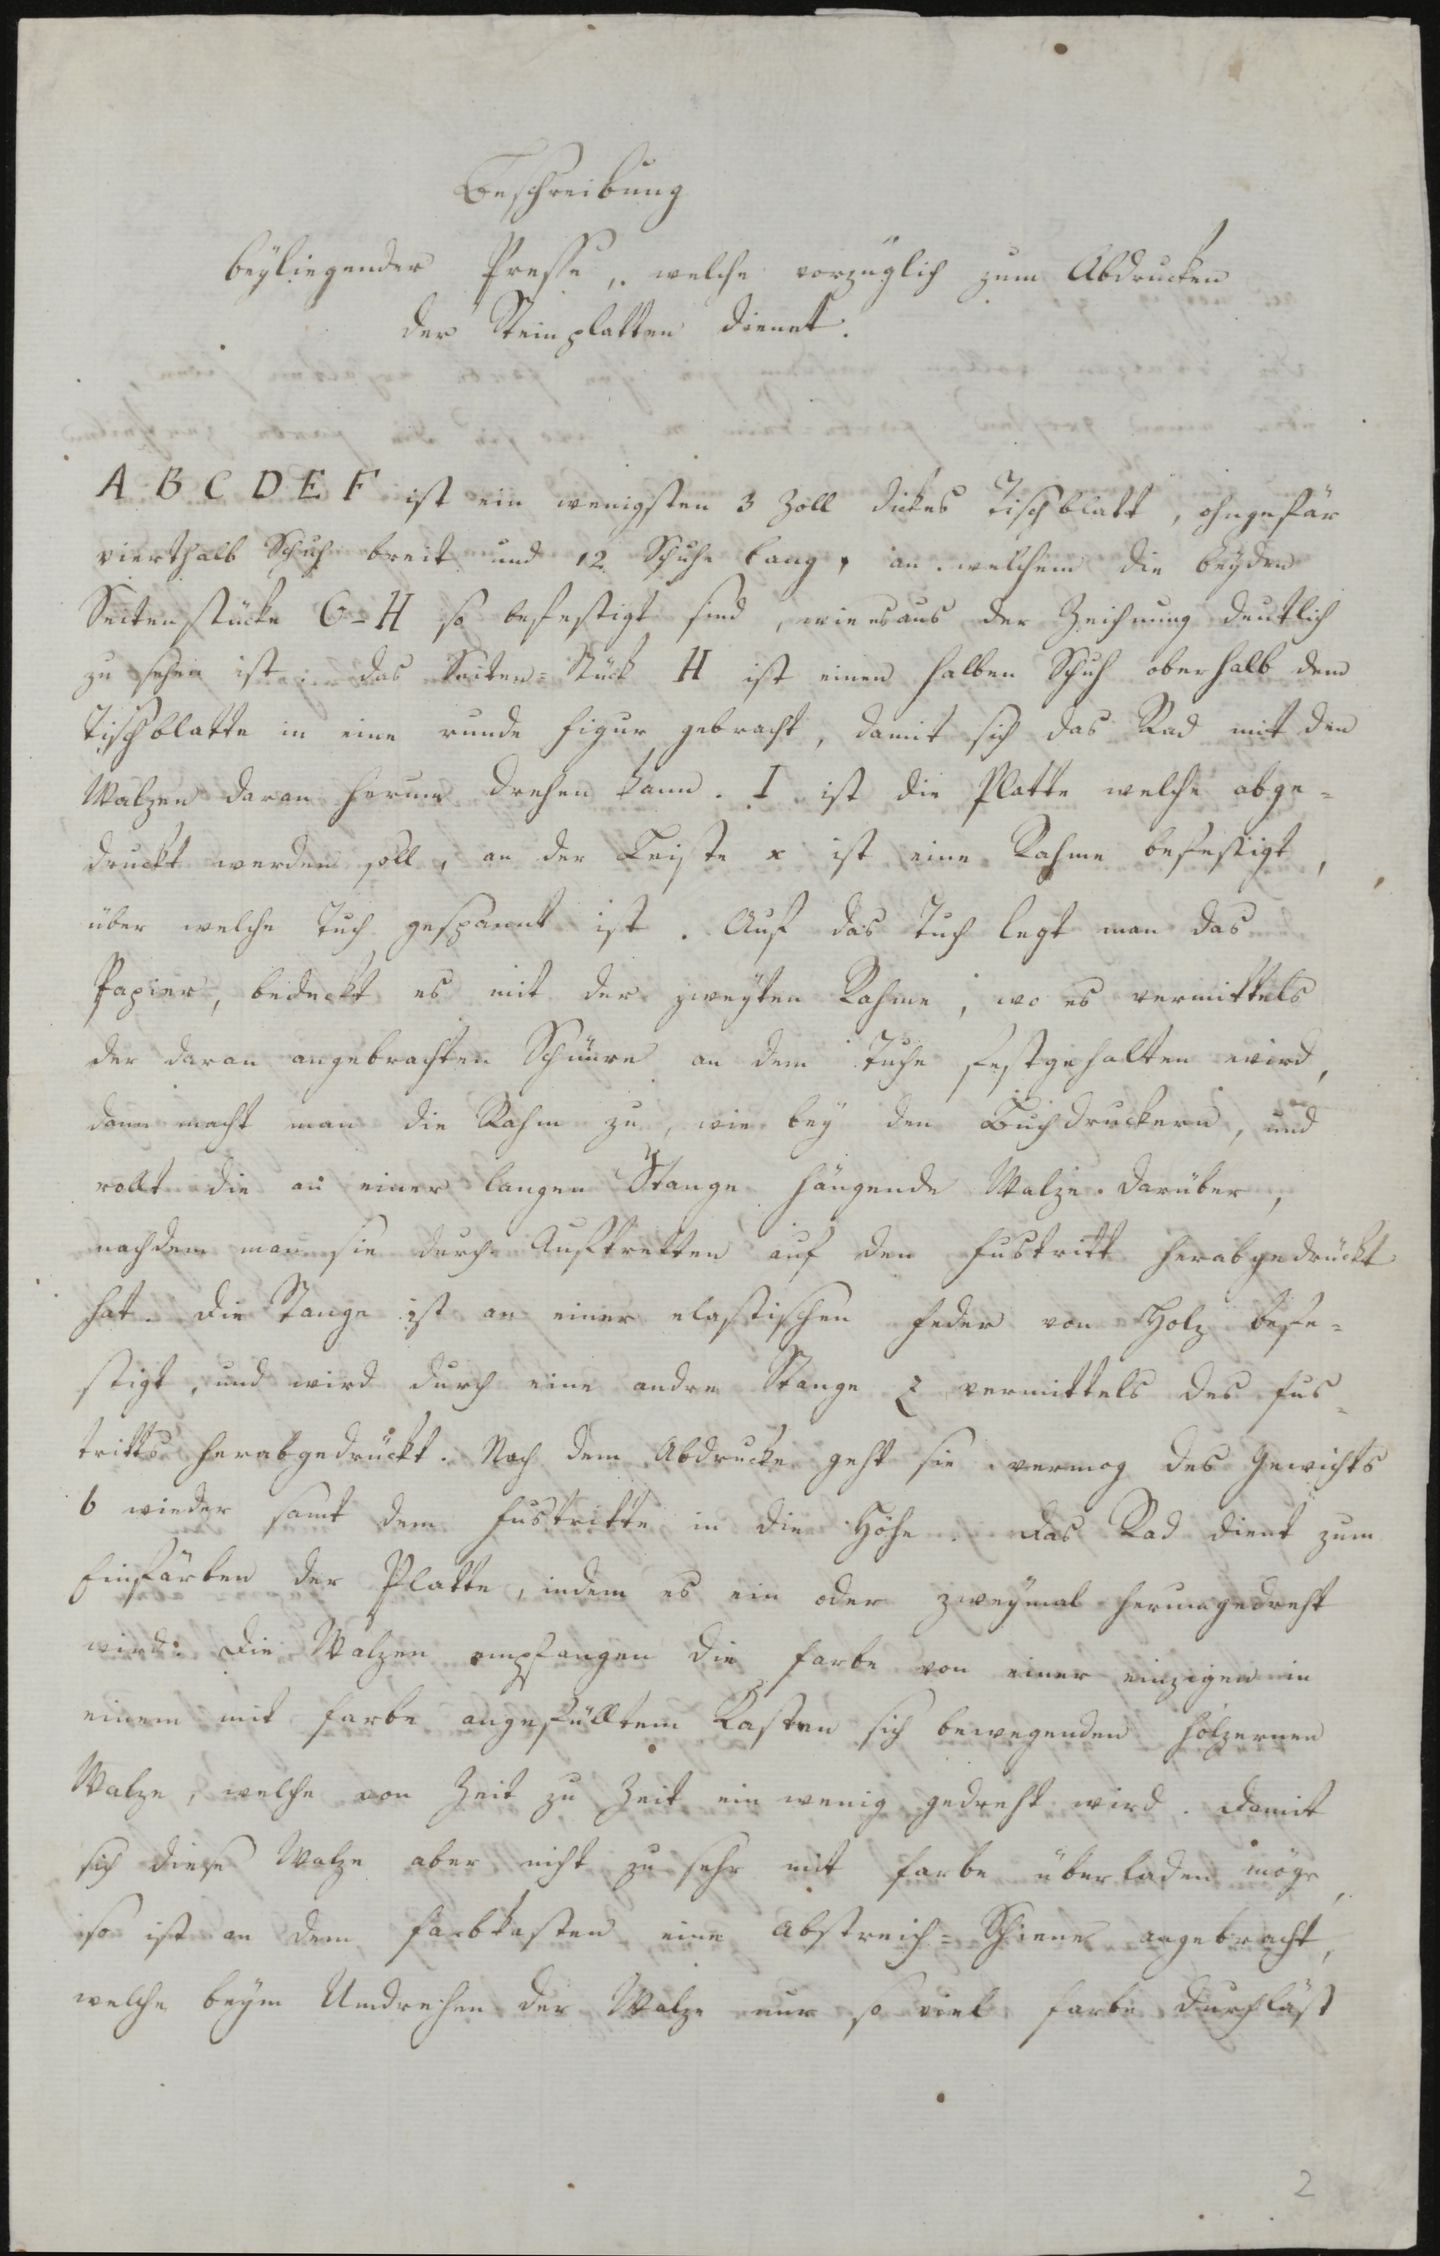 Beschreibung
beyliegender Presse, welche vorzüglich zum Abdrucken
der Steinplatten dienet.
A B C D E F ist ein wenigsten 3 Zoll dickes Tischblatt, ohngefär
vierthalb Schuh breit und 12 Schuhe lang, an welchem die beyden
Seitenstücke G=H so befestigt sind, wie es aus der Zeichnung deutlich
zu sehen ist. das Seiten=Stück H ist einen halben Schuh oberhalb dem
Tischblatte in eine runde Figur gebracht, damit sich das Rad mit den
Walzen daran herum drehen kann. I ist die Platte welche abge=
druckt werden soll, an der Leiste x ist eine Rahme befestigt,
über welche Tuch gespannt ist. Auf das Tuch legt man das
Papier, bedeckt es mit der zweyten Rahme, wo es vermittels
der daran angebrachten Schnüre an dem Tuche festgehalten wird,
dann macht man die Rahm zu, wie bey den Buchdruckern, und
rollt die an einer langen Stange y hängende Walze darüber,
nachdem man sie durch Auftretten auf den Fustritt herabgedrückt
hat. Die Stange ist an einer elastischen Feder von Holz befe=
stigt, und wird durch eine andre Stange z vermittels des Fus=
tritts herabgedrückt. Nach dem Abdrucke geht sie vermög des Gewichts
b wieder samt dem Fustritte in die Höhe. Das Rad dient zum
Einfärben der Platte, indem es ein oder zweymal herumgedreht
wird. Die Walzen empfangen die Farbe von einer einzigen in
einem mit Farbe angefülltem Kasten sich bewegenden hölzernen
Walze, welche von Zeit zu Zeit ein wenig gedreht wird. Damit
sich diese Walze aber nicht zu sehr mit Farbe überladen möge,
so ist an dem Farbkasten eine Abstreich=Schiene angebracht,
welche beym Umdrehen der Walze nur so viel Farbe durchläst
2